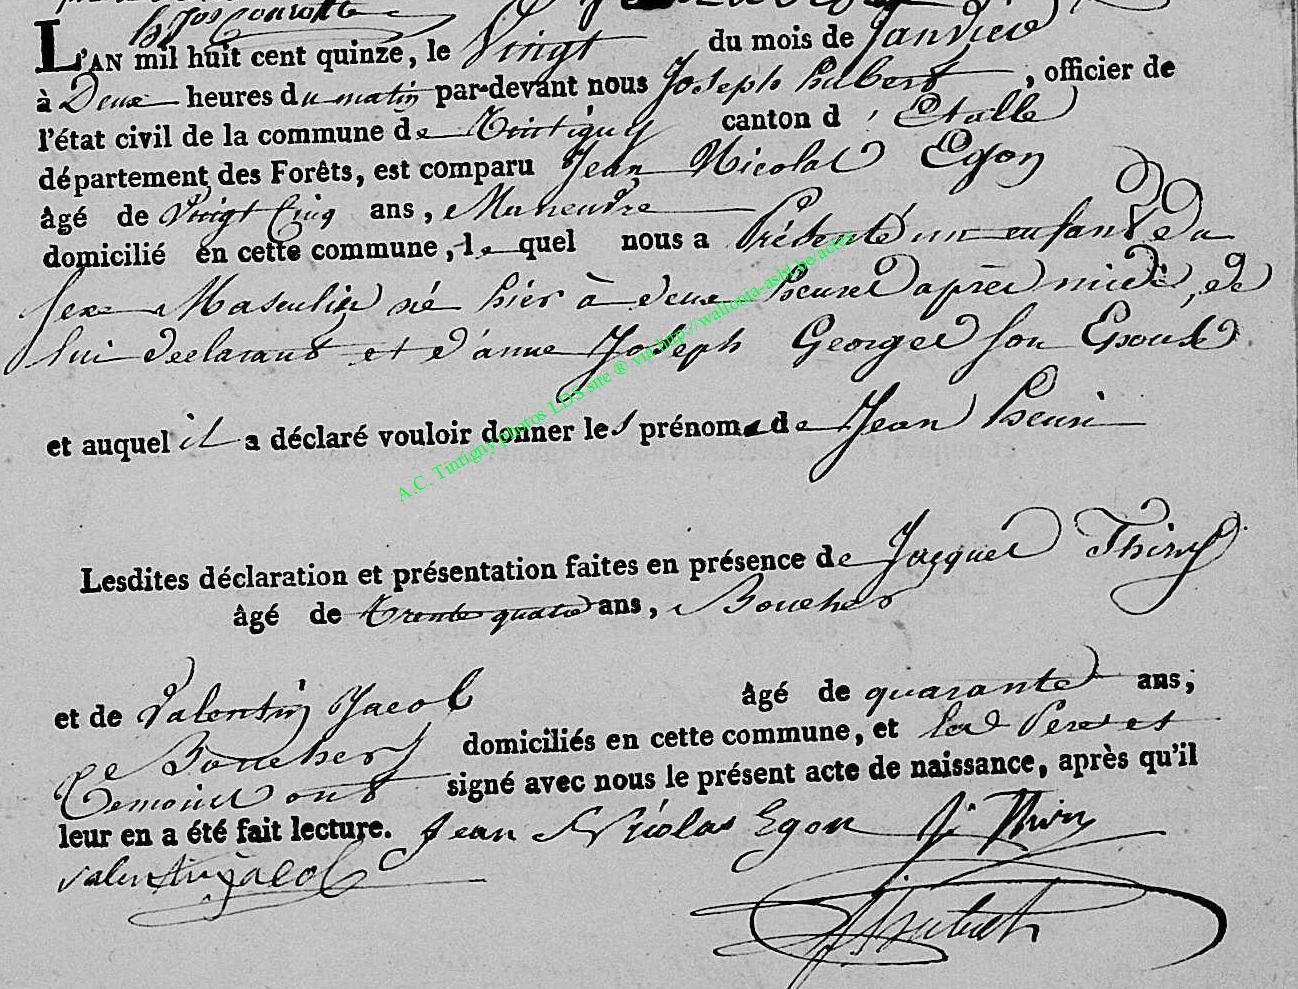 L'AN mil huit cent quinze, le Vingt du mois de Janvier
à Deux heures du matin par-devant nous Joseph hubert, officier de
l'état civil de la commune de Tintigny canton d'Etalle
département des Forêts, est comparu Jean Nicolas Egon
âgé de Vingt Cinq ans, Maneuvre
domicilié en cette commune, le quel nous a Présenté un enfant du
sexe Masculin né hier à deux heures après midi, de
lui declarant et d'anne Joseph Georges son Epouse
et auquel il a déclaré vouloir donner les prénoms de Jean henri
Lesdites déclaration et présentation faites en présence de Jacques Thiry
âgé de trente quatre ans, Boucher
et de Valentin Jacob âgé de quarante ans,
Boucher domiciliés en cette commune, et les Peres et
temoins ont signé avec nous le présent acte de naissance, après qu'il
leur en a été fait lecture. Jean Nicolas Egon J. Thiry
valentin jacob
Hubert
A.C. Tintigny photos LDS site ® via http://wallonia-asbl.be/actes